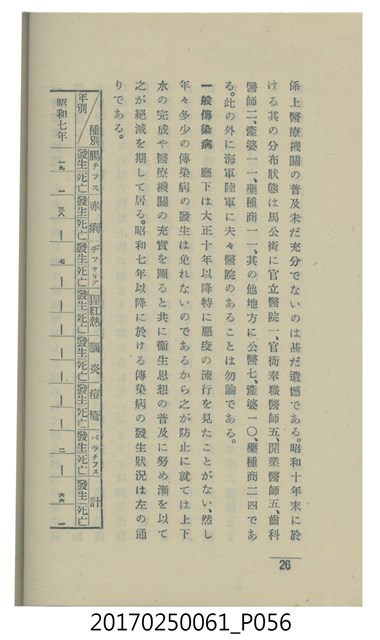 係上醫療機關の普及未だ充分でないのは甚だ遺憾である。昭和十年末に於
ける其の分布狀態は馬公街に官立醫院一、官衙奉職醫師五、開業醫師五、齒科
醫師二、產婆一一、藥種商一一、其の他地方に公醫七、產婆一〇、藥種商二四であ
る。此の外に海軍陸軍に夫々醫院のあることは勿論である。
一般傳染病 廳下は大正十年以降特に惡疫の流行を見たことがない、然し
年々多少の傳染病の發生は免れないのであるから之が防止に就ては上下
水の完成や醫療機關の充實を圖ると共に衞生思想の普及に努め漸を以て
之が絕滅を期して居る。昭和七年以降に於ける傳染病の發生狀況は左の通
りである。
種別 腸チフス 赤痢 ヂフテリア 猩紅熱 腦炎 痘瘡 パラチフス 計
年別 發生 死亡 發生 死亡 發生 死亡 發生 死亡 發生 死亡 發生 死亡 發生 死亡 發生 死亡
昭和七年 一九 一 三八 ー 七 ー ー ー ー ー ー ー 二 ー 六六 一
26
20170250061_P056